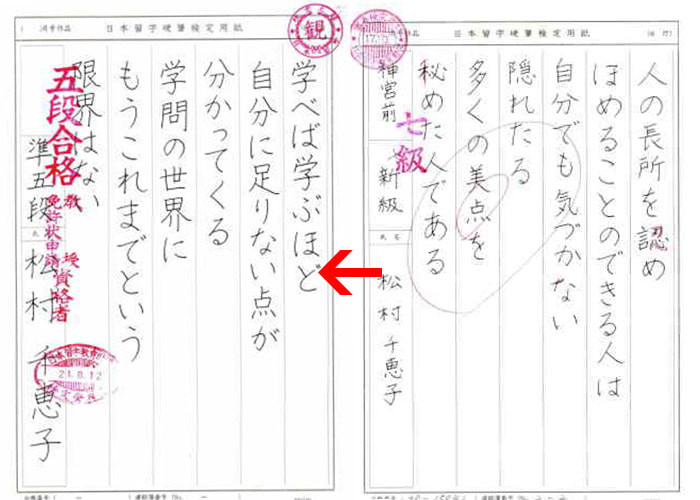 日本習字硬筆検定用紙
人の長所を認め
ほめることのできる人は
自分でも気づかない
隠れたる
多くの美点を
秘めた人である
七級
神宮前
新級
氏名
松村千恵子
日本習字硬筆検定用紙
観
学べば学ぶほど
自分に足りない点が
分かってくる
学問の世界に
もうこれまでという
限界はない
五段合格
教授資格者
免許状申請
準五段
松村千恵子
21.8.12